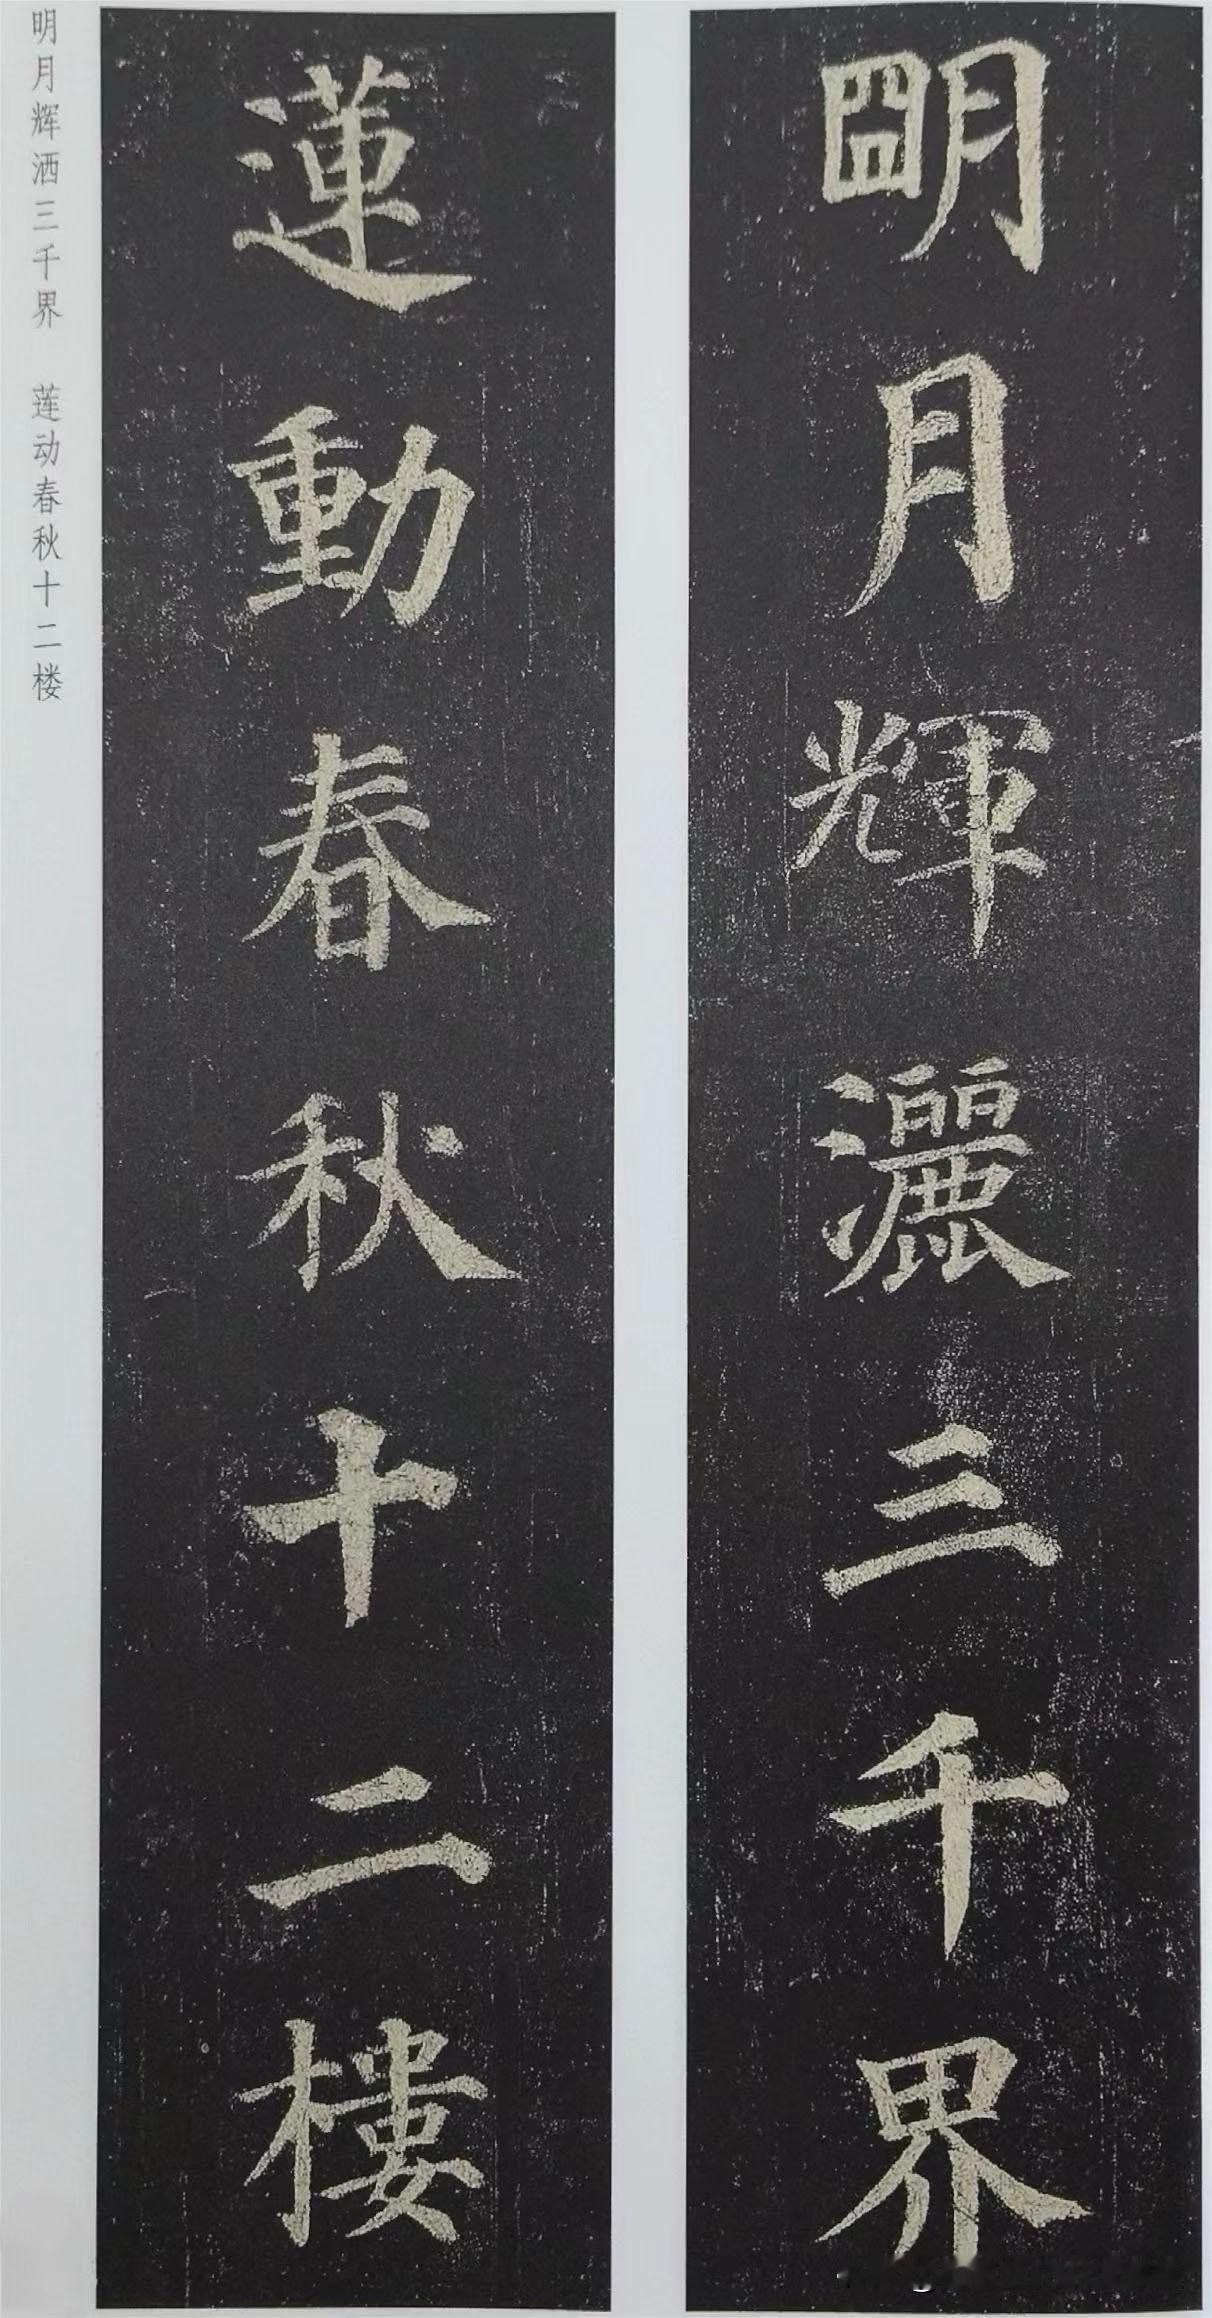 明月輝灑三千界
蓮動春秋十二樓
明月辉洒三千界 莲动春秋十二楼